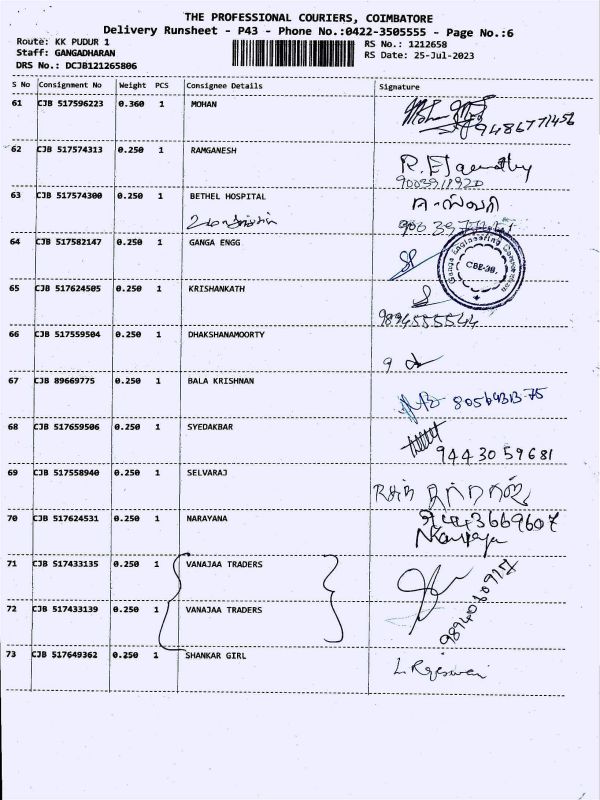 THE PROFESSIONAL COURIERS, COIMBATORE
Delivery Runsheet - P43 - Phone No.:0422-3505555 - Page No.:6
Route: KK PUDUR 1
RS No.: 1212658
Staff: GANGADHARAN
RS Date: 25-Jul-2023
DRS No.: DCJB121265806
S No Consignment No Weight PCS Consignee Details Signature
61 CJB 517596223 0.360 1 MOHAN
9486771456
62 CJB 517574313 0.250 1 RAMGANESH
9003911920
63 CJB 517574300 0.250 1 BETHEL HOSPITAL
64 CJB 517582147 0.250 1 GANGA ENGG
Ganga Engineering Corporation
CBE-38.
65 CJB 517624505 0.250 1 KRISHANKATH
9894555544
66 CJB 517559504 0.250 1 DHAKSHANAMOORTY
67 CJB 89669775 0.250 1 BALA KRISHNAN
68 CJB 517659506 0.250 1 SYEDAKBAR
9443059681
69 CJB 517558940 0.250 1 SELVARAJ
70 CJB 517624531 0.250 1 NARAYANA
9443669607
71 CJB 517433135 0.250 1 VANAJAA TRADERS
72 CJB 517433139 0.250 1 VANAJAA TRADERS
73 CJB 517649362 0.250 1 SHANKAR GIRL